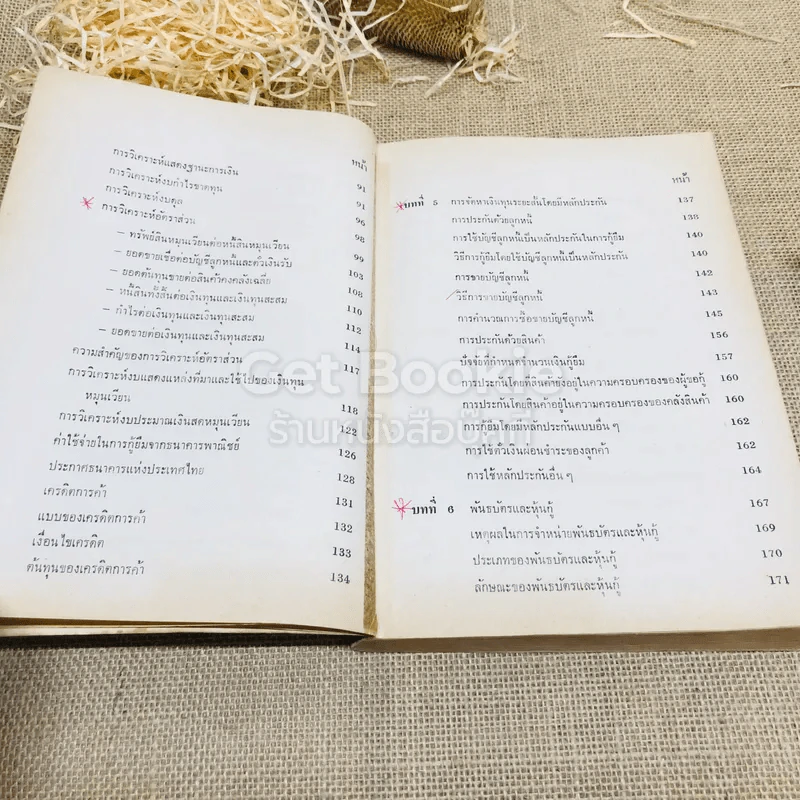 หน้า
การวิเคราะห์แสดงฐานะการเงิน 91
การวิเคราะห์งบกำไรขาดทุน 91
การวิเคราะห์งบดุล 96
การวิเคราะห์อัตราส่วน 98
– ทรัพย์สินหมุนเวียนต่อหนี้สินหมุนเวียน 99
– ยอดขายเชื่อต่อบัญชีลูกหนี้และตั๋วเงินรับ 103
– ยอดต้นทุนขายต่อสินค้าคงคลังเฉลี่ย 108
– หนี้สินทั้งสิ้นต่อเงินทุนและเงินทุนสะสม 110
– กำไรต่อเงินทุนและเงินทุนสะสม 112
– ยอดขายต่อเงินทุนและเงินทุนสะสม 114
ความสำคัญของการวิเคราะห์อัตราส่วน 117
การวิเคราะห์งบแสดงแหล่งที่มาและใช้ไปของเงินทุน
หมุนเวียน 118
การวิเคราะห์งบประมาณเงินสดหมุนเวียน 122
ค่าใช้จ่ายในการกู้ยืมจากธนาคารพาณิชย์ 126
ประกาศธนาคารแห่งประเทศไทย 128
เครดิตการค้า 131
แบบของเครดิตการค้า 132
เงื่อนไขเครดิต 133
ต้นทุนของเครดิตการค้า 134
หน้า
บทที่ 5 การจัดหาเงินทุนระยะสั้นโดยมีหลักประกัน 137
การประกันด้วยลูกหนี้ 138
การใช้บัญชีลูกหนี้เป็นหลักประกันในการกู้ยืม 140
วิธีการกู้ยืมโดยใช้บัญชีลูกหนี้เป็นหลักประกัน 140
การขายบัญชีลูกหนี้ 142
วิธีการขายบัญชีลูกหนี้ 143
การคำนวณการซื้อขายบัญชีลูกหนี้ 145
การประกันด้วยสินค้า 156
ปัจจัยที่กำหนดจำนวนเงินกู้ยืม 157
การประกันโดยที่สินค้ายังอยู่ในความครอบครองของผู้ขอกู้ 160
การประกันโดยสินค้าอยู่ในความครอบครองของคลังสินค้า 160
การกู้ยืมโดยมีหลักประกันแบบอื่น ๆ 162
การใช้ตั๋วเงินผ่อนชำระของลูกค้า 162
การใช้หลักประกันอื่น ๆ 164
บทที่ 6 พันธบัตรและหุ้นกู้ 167
เหตุผลในการจำหน่ายพันธบัตรและหุ้นกู้ 169
ประเภทของพันธบัตรและหุ้นกู้ 170
ลักษณะของพันธบัตรและหุ้นกู้ 171
Get Bookie
ร้านหนังสือ